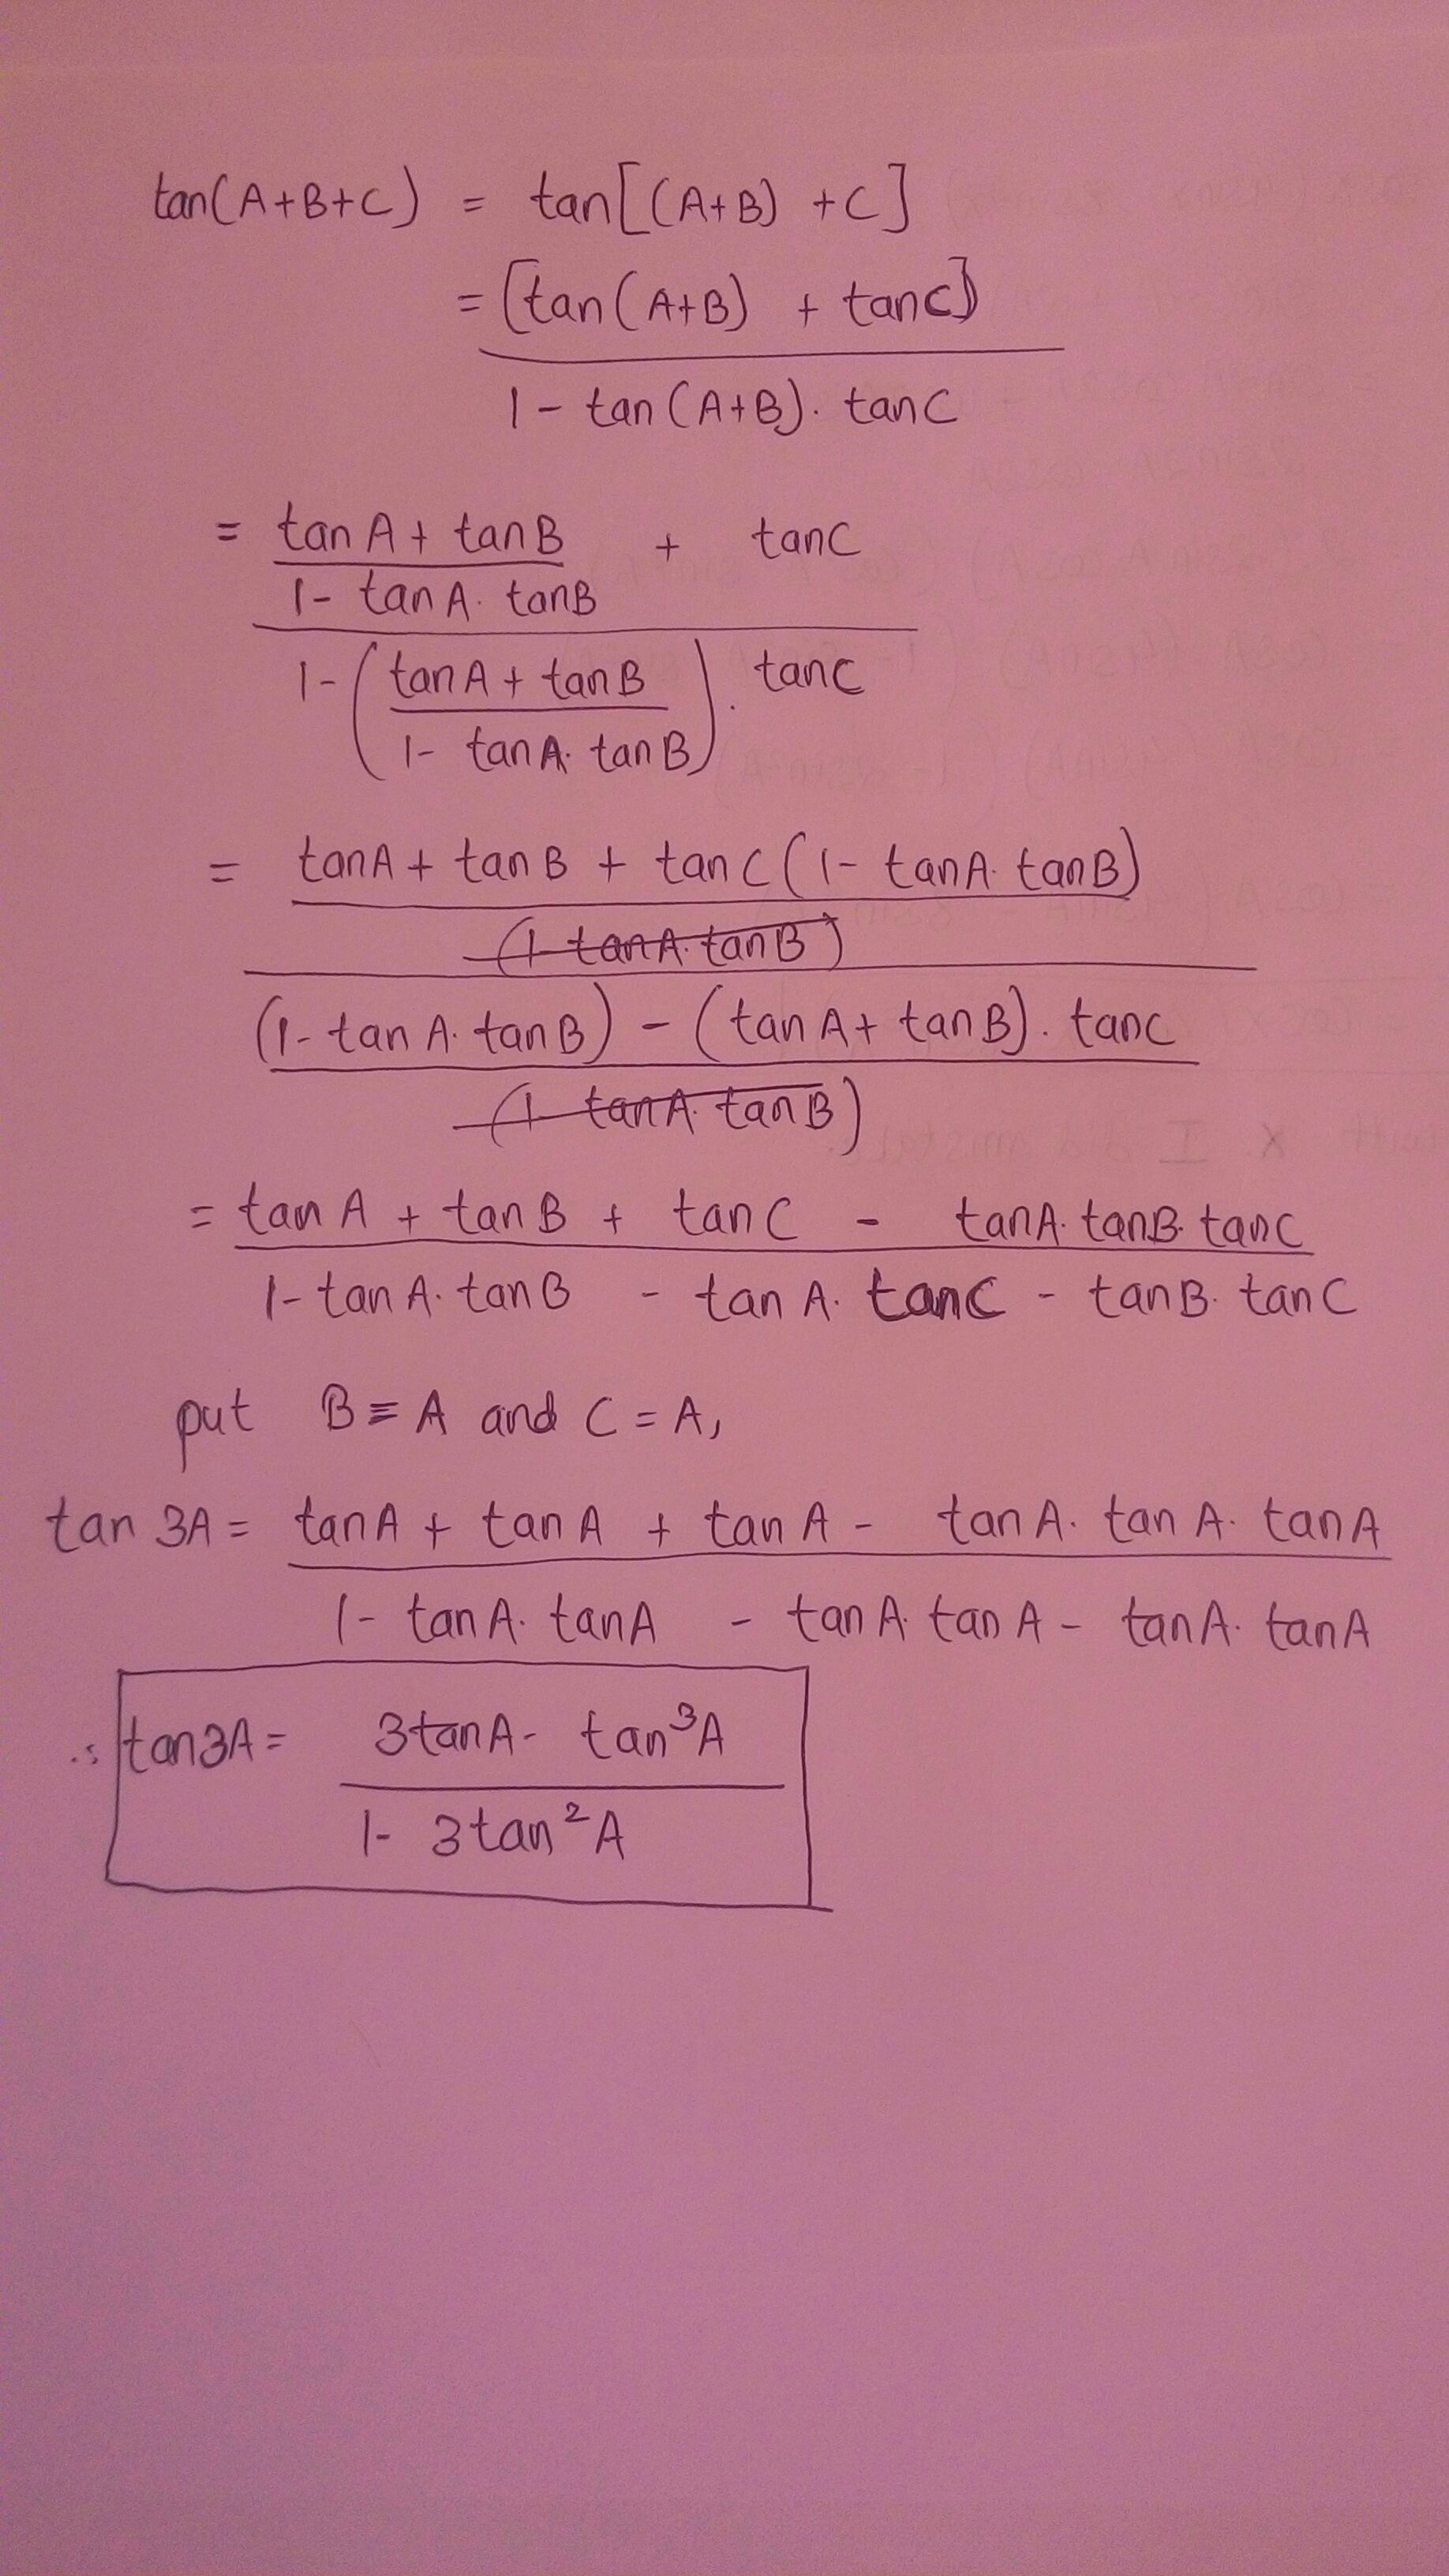 tan(A+B+C) = tan[(A+B) +C]
= [tan(A+B) + tanC]
1 - tan(A+B). tanC
= tan A + tan B + tanC
1- tan A. tanB
1-(tanA + tanB). tanC
1- tanA. tanB
= tanA + tan B + tan C (1- tanA. tanB)
(1- tanA. tanB)
(1- tan A. tanB) - (tan A+ tan B). tanC
(1- tanA. tanB)
= tan A + tan B + tan C - tanA. tanB. tanC
1- tan A. tanB - tan A. tanC - tanB. tanC
put B = A and C = A,
tan 3A = tanA + tan A + tan A - tan A. tan A. tanA
1- tanA. tanA - tan A. tan A - tanA. tanA
∴ tan3A = 3tanA- tan³A
1- 3tan²A